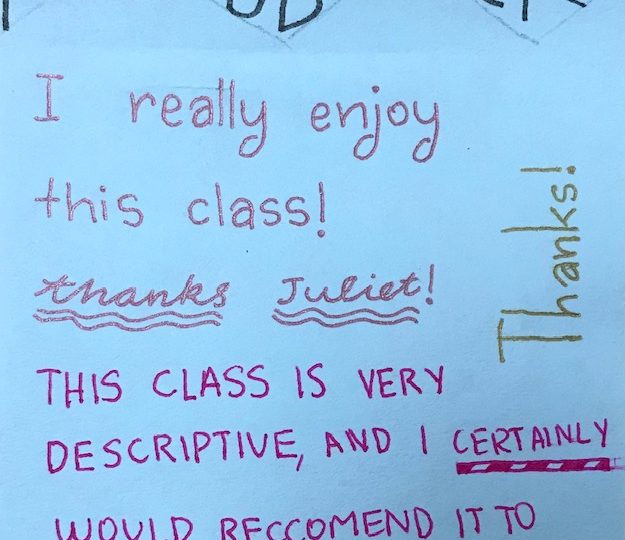 I really enjoy
this class!
thanks Juliet!
Thanks!
THIS CLASS IS VERY
DESCRIPTIVE, AND I CERTAINLY
WOULD RECCOMEND IT TO